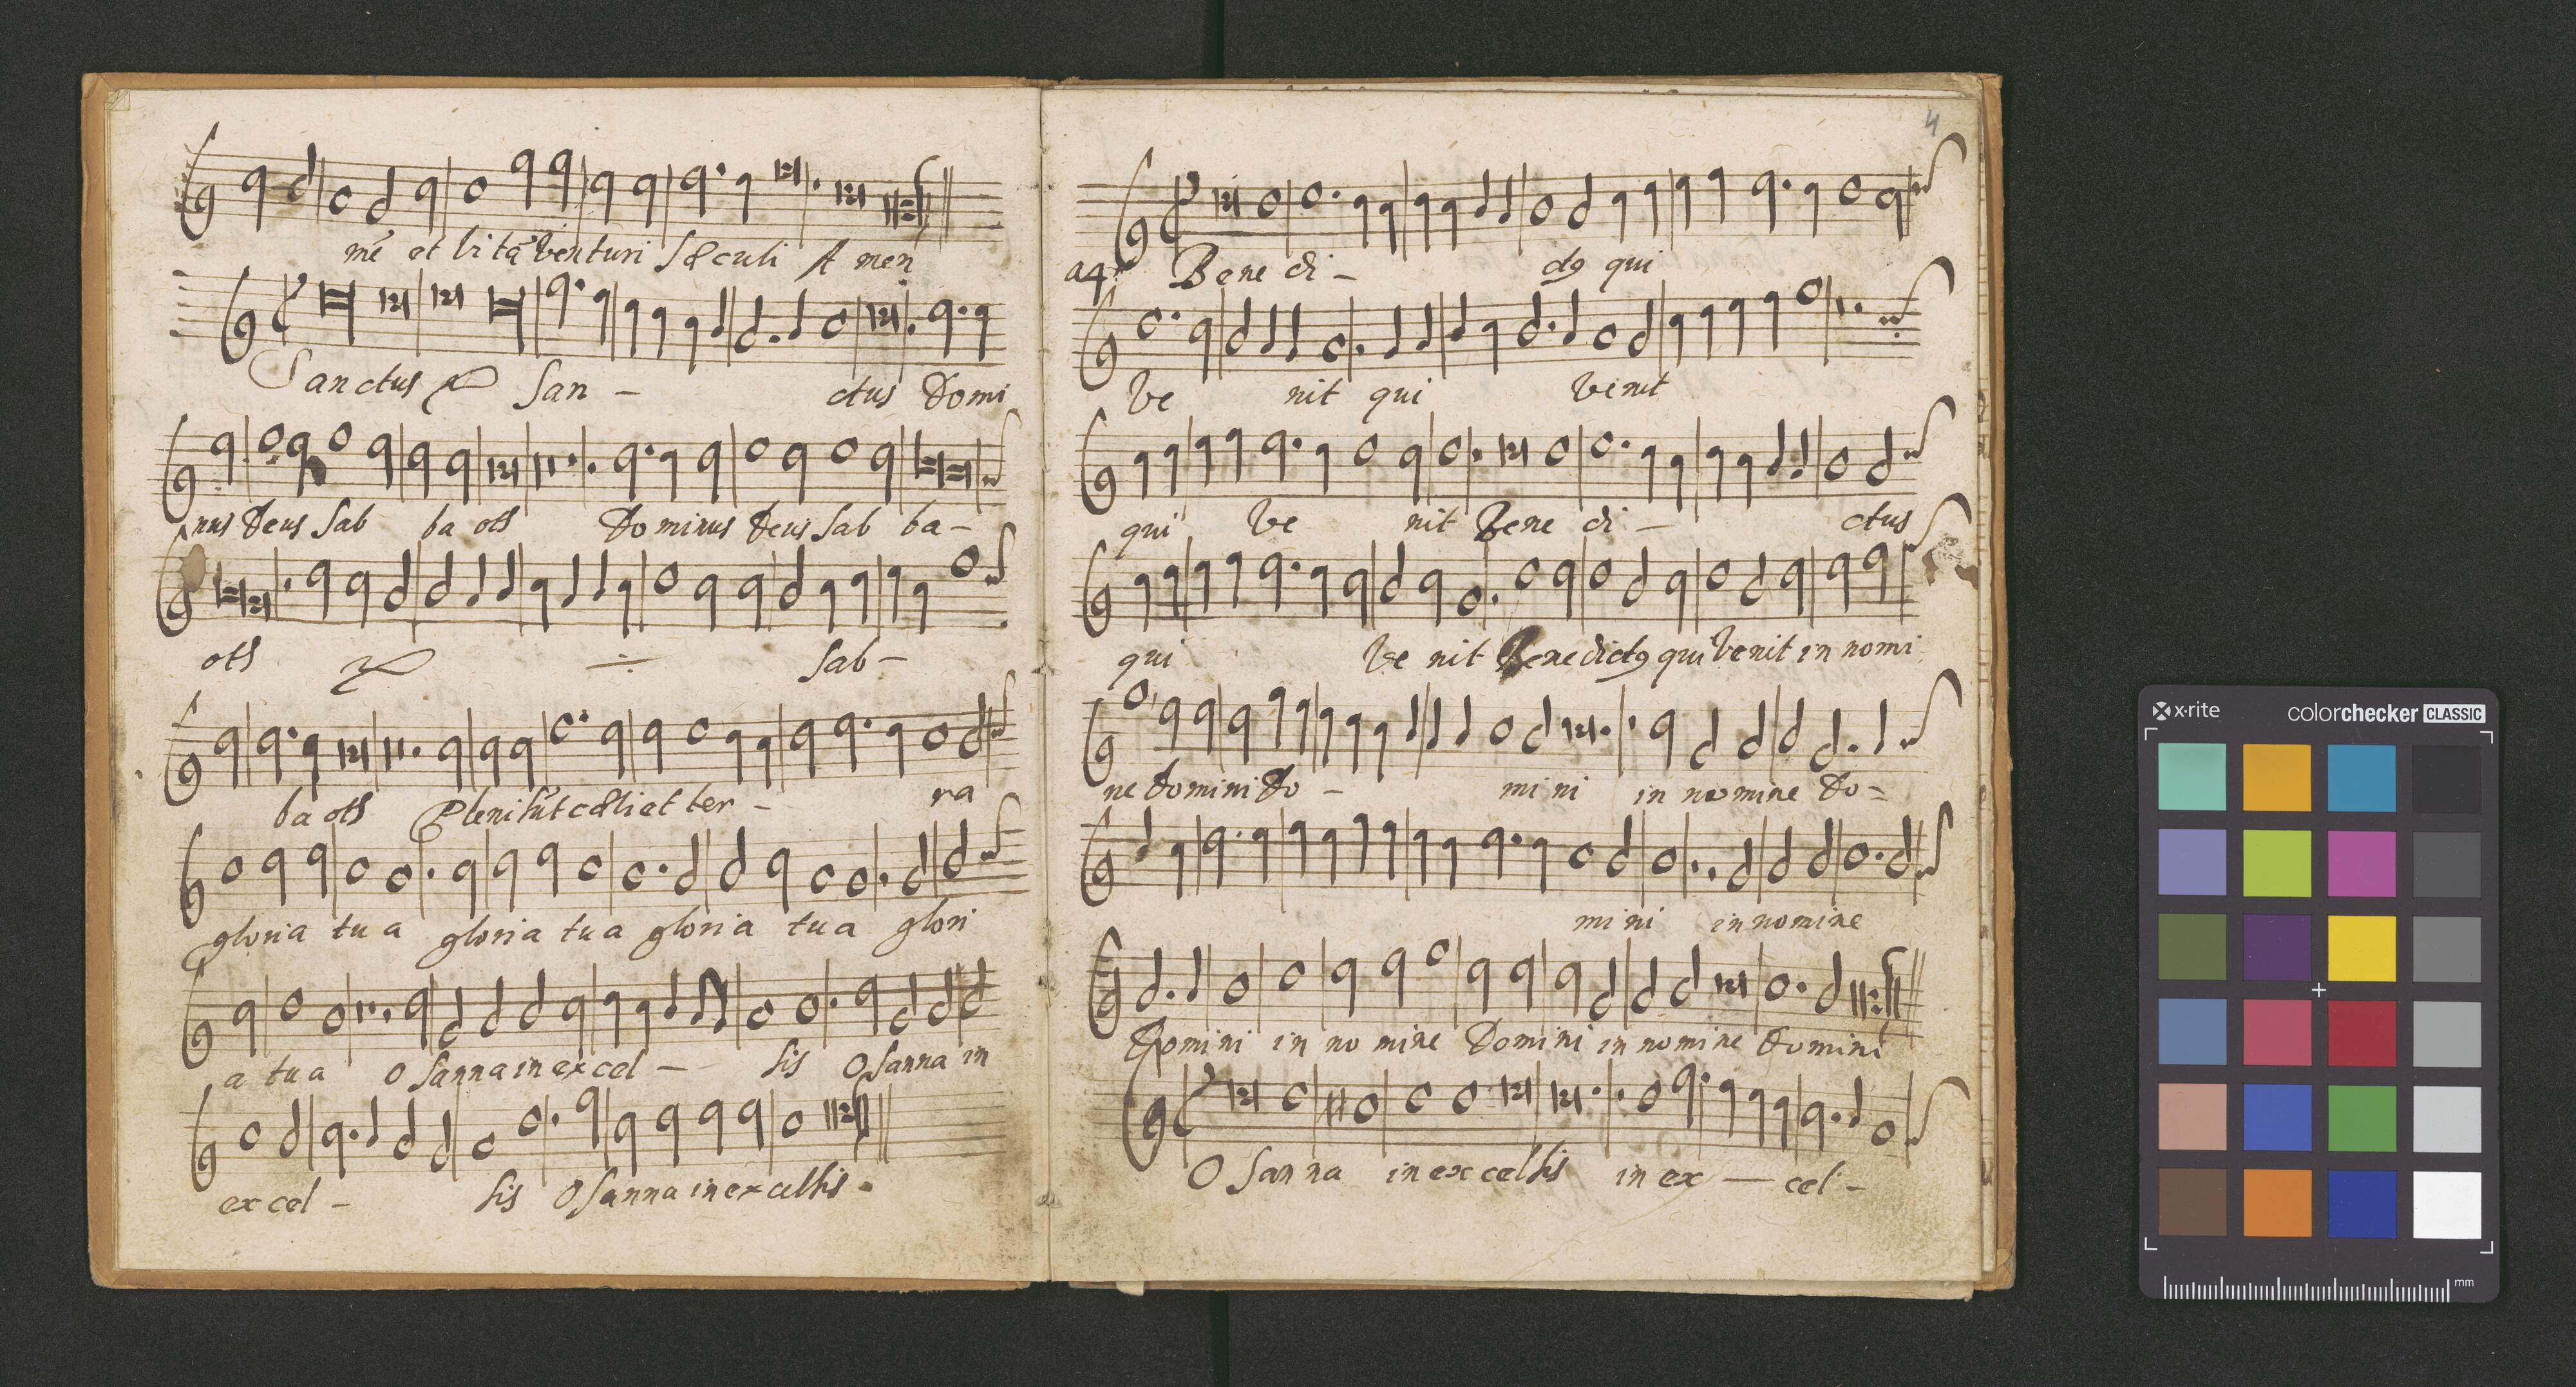 mẽ et vitã venturi sæculi A men
Sanctus San - ctus Domi
nus Deus Sab ba oth Dominus Deus Sab ba -
oth Sab -
ba oth Pleni sũt cœli et ter - ra
gloria tu a gloria tu a gloria tu a glori
a tu a O sanna in ex cel - sis O sanna in
ex cel - sis O sanna in excelsis.
4
a4 Bene di - ctꝰ qui
ve nit qui venit
qui ve nit Bene di - ctus
qui ve nit Benedictꝰ qui venit in nomi
ne Domini Do - mi ni in nomine Do -
mi ni in nomine
Domini in no mine Domini in nomine Domini
O San na in ex celsis in ex — cel -
x-rite colorchecker CLASSIC
mm